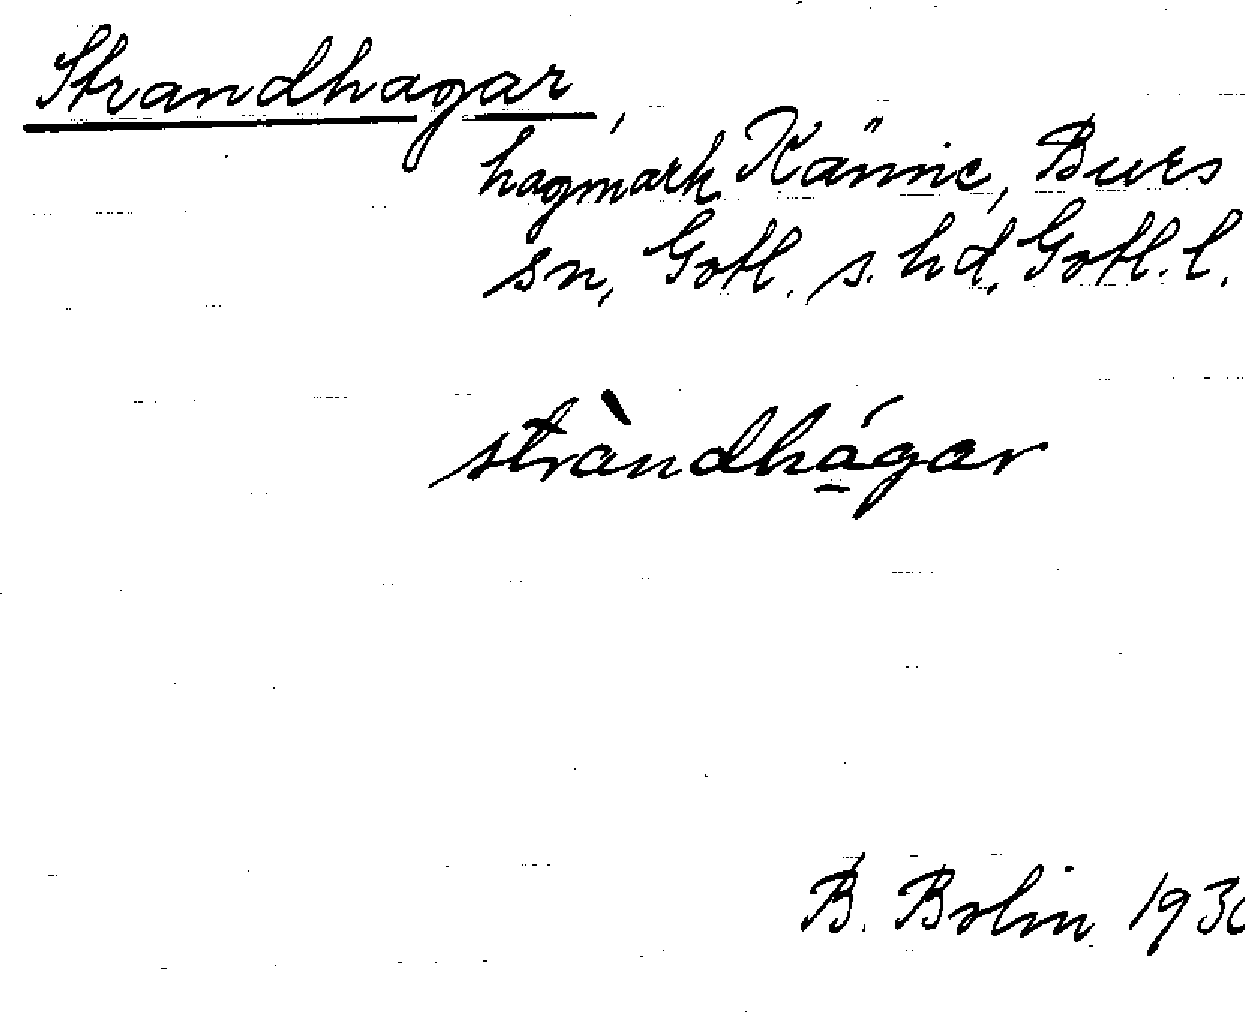 Strandhagar,
hagmark Känne, Burs
sn, Gotl. s. hd, Gotl. l.
stràndhá̱gar
B. Bolin 1930